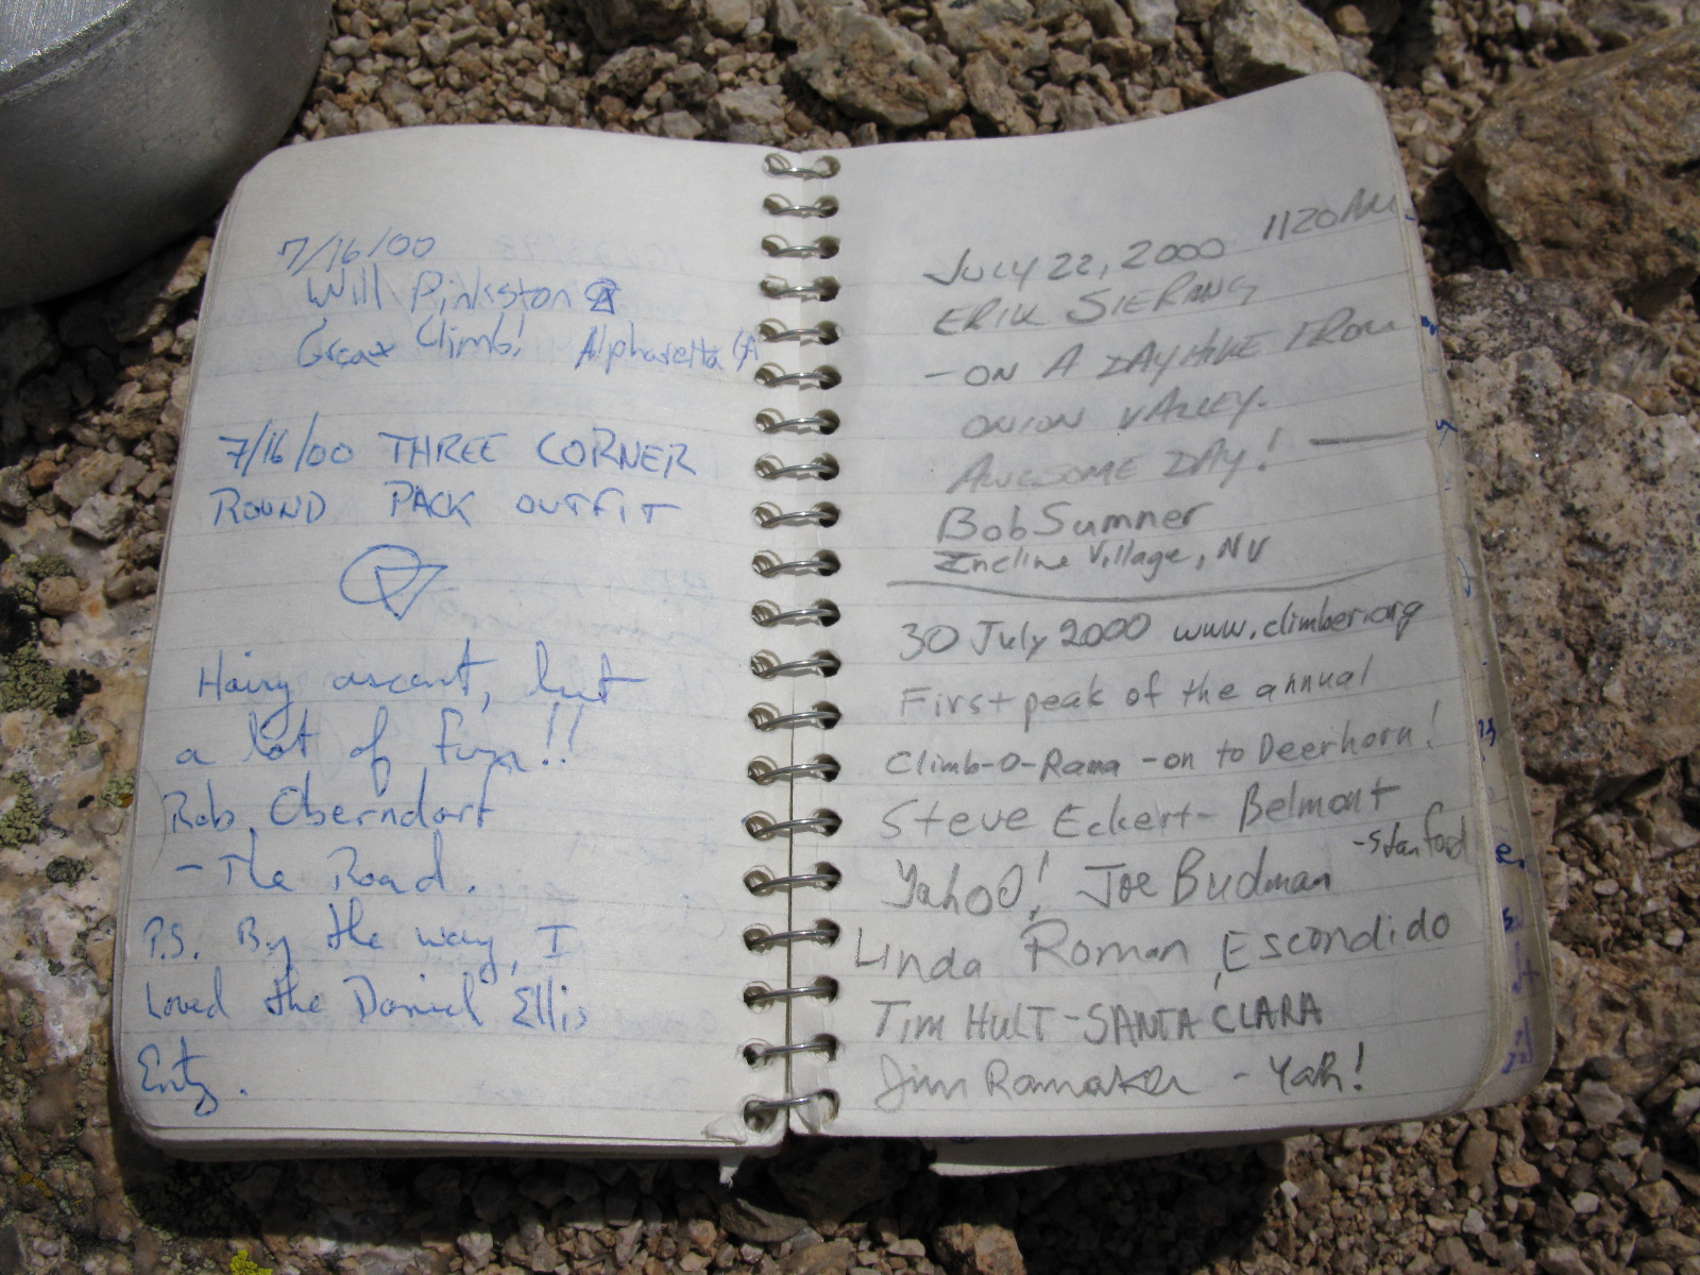 7/16/00
Will Pinkston
Great Climb! Alpharetta GA
7/16/00 THREE CORNER
ROUND PACK OUTFIT
Hairy ascent, but
a lot of fun!!
Rob Oberndorf
- The Road.
P.S. By the way, I
loved the Daniel Ellis
Entry.
1120AM
JULY 22, 2000
ERIK SIERING
- ON A DAYHIKE FROM
ONION VALLEY.
AWESOME DAY!
Bob Sumner
Incline Village, NV
30 July 2000 www.climber.org
First peak of the annual
Climb-O-Rama - on to Deerhorn!
Steve Eckert - Belmont
Yahoo! Joe Budman - Stanford
Linda Roman, Escondido
Tim HulT - SANTA CLARA
Jim Ramaker - Yah!